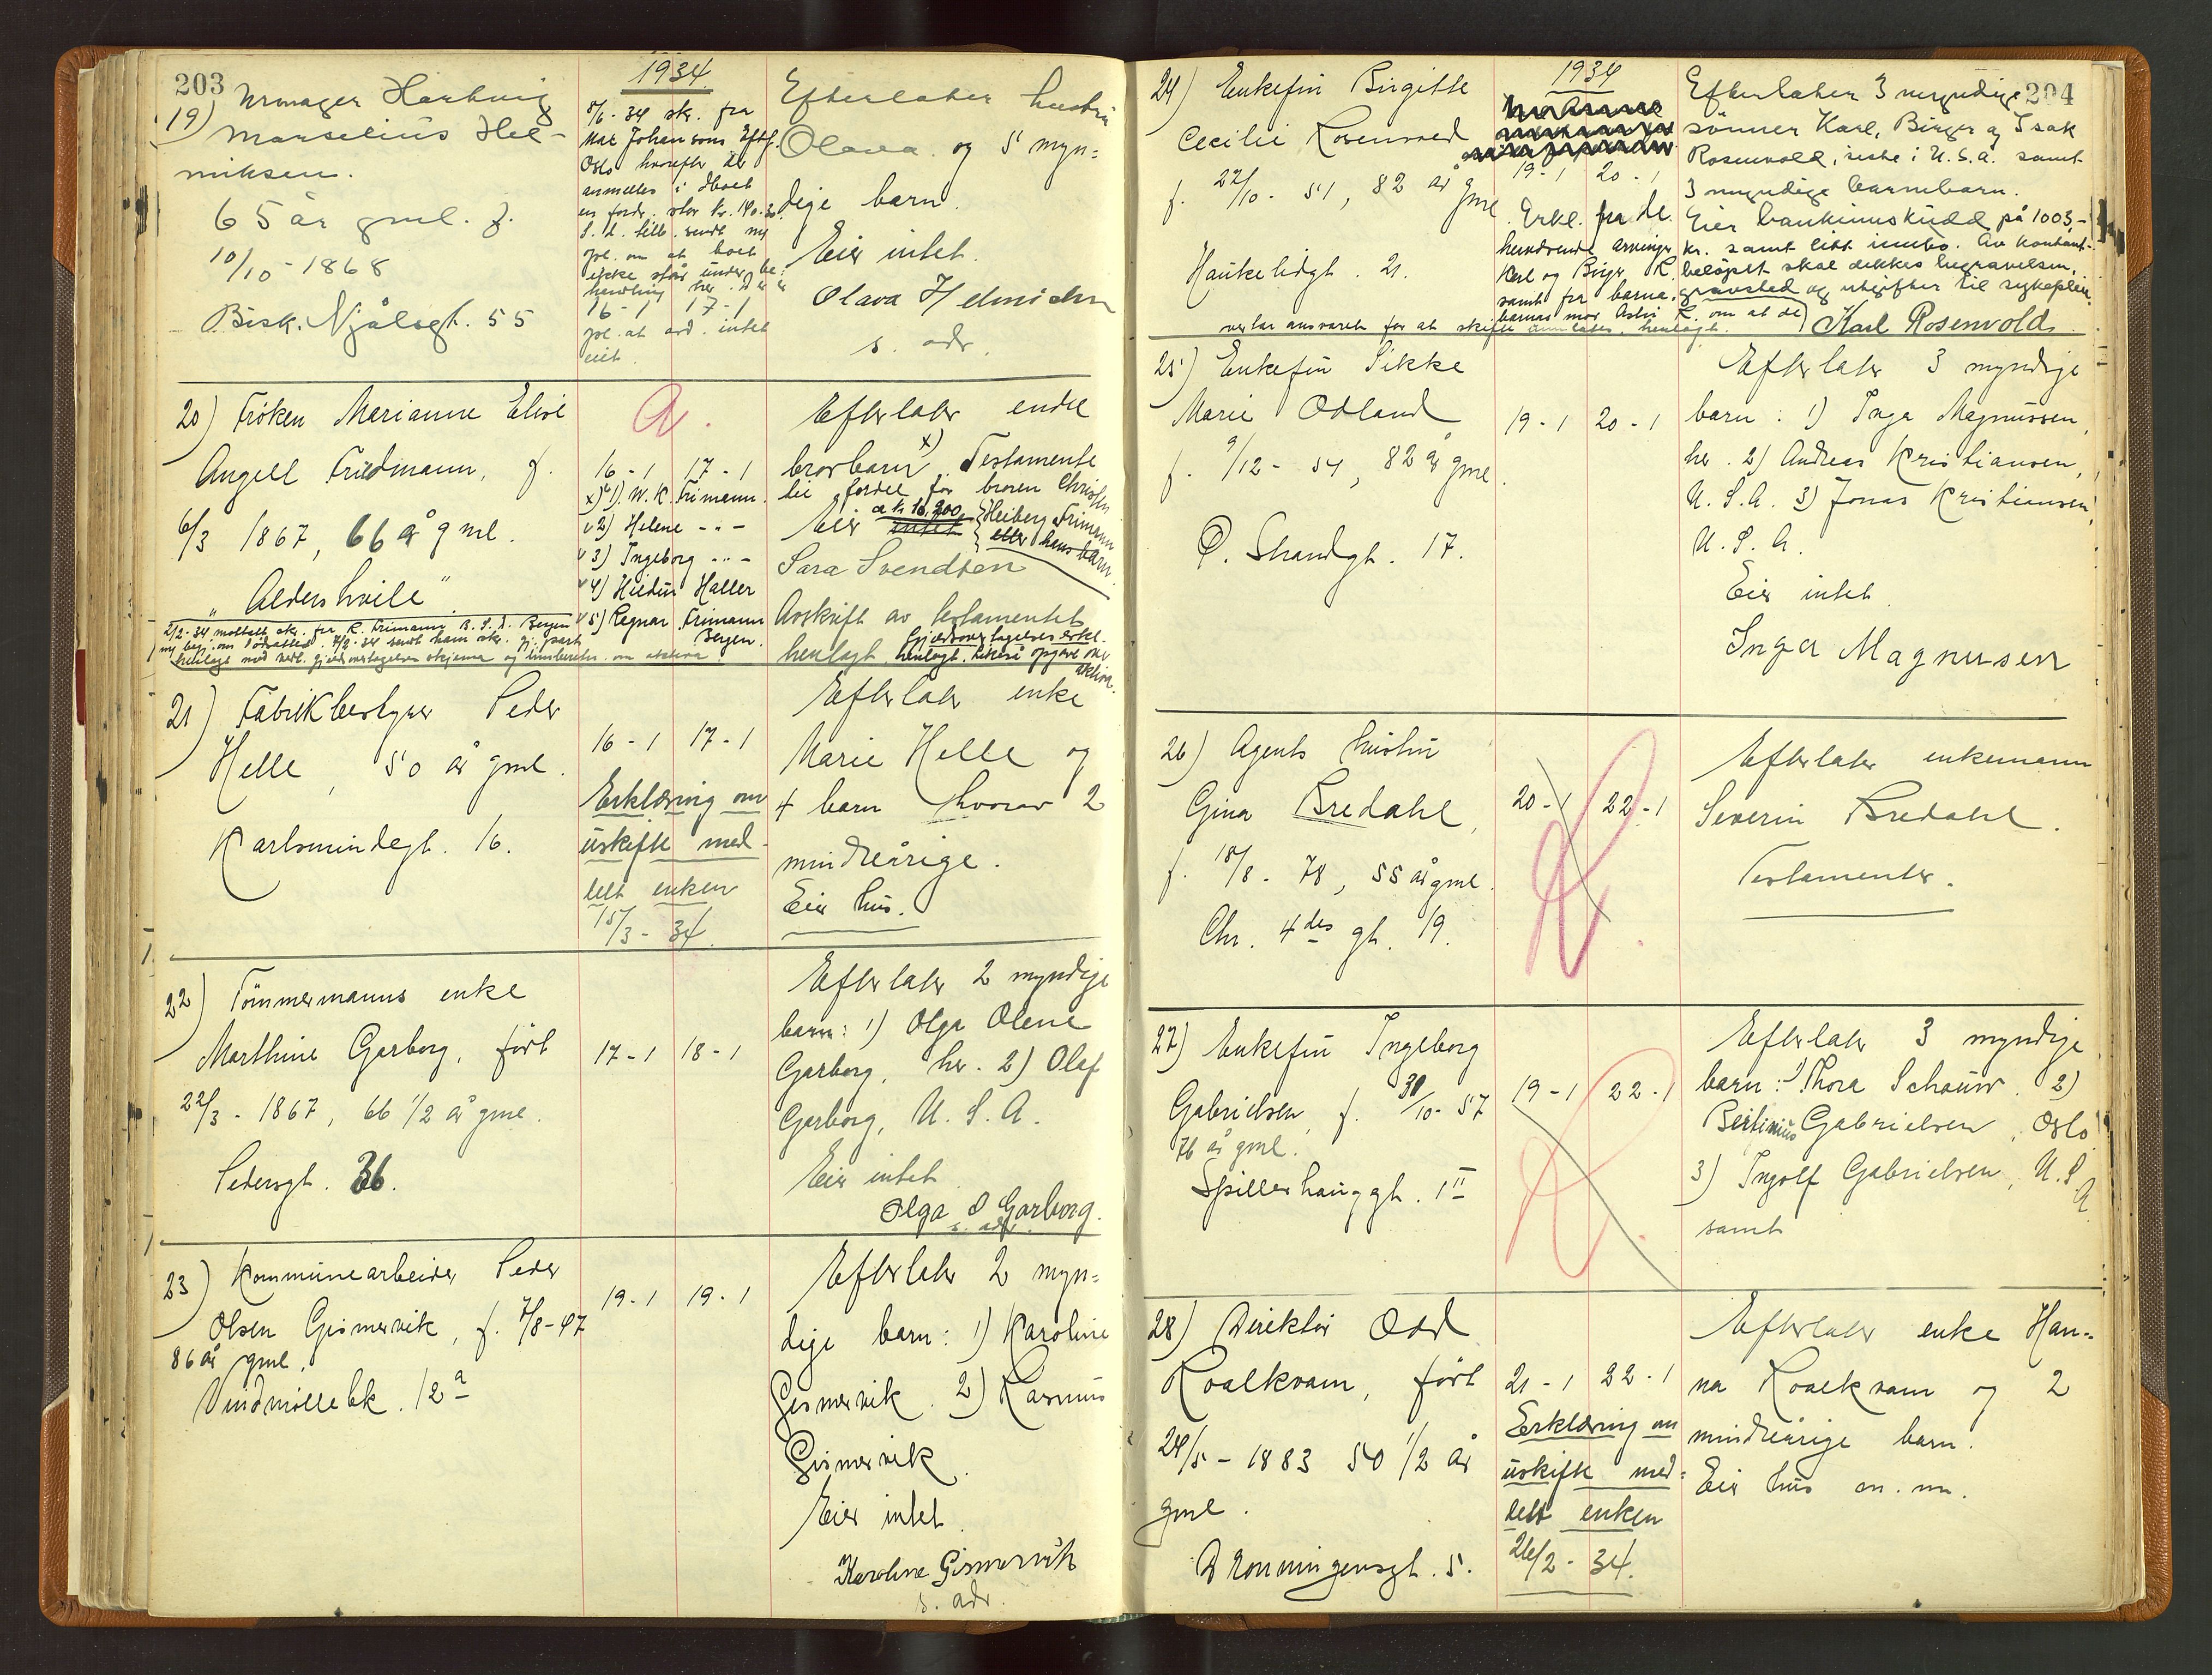 203
1934.
19) Urmager Hartvig
Marselius Hel-
miksen.
65 år gml. f.
10/10 - 1868
Bisk. Njålsgt. 55
8/6 - 34 skr. fra
Mar Johansons Eftf.
Oslo hvorefter der
anmeldes i dboet
en fordr. stor kr. 140.30.
S. d. tilb. sendt m
opl. om at boet
ikke står under be-
handling her.
16 - 1 17 - 1
opl. at avd. intet
eiet.
Efterlater hustru
Olava og 5 myn-
dige barn.
Eier intet.
Olava Helmichsen
s. adr.
20) Frøken Marianne Elise
Angell Friedmann, f.
6/3 1867, 66 år gml.
"Aldershvile".
2/2-34 mottatt skr. fra R. Frimann B. S. A. Bergen
A.
16 - 1 17 - 1
x) 1) W. K. Frimann.
2) Helene -"-
3) Ingeborg -"-
4) Hildur Haller
5) Ragnar Frimann
Bergen.
Efterlater endel
brorbarn x). Testamente
til fordel for broren Christen
Heiberg Frimann
eller hans barn.
Eier intet ca kr. 10,200
Sara Svendsen
Avskrift av testamentet
henlagt. Gjeldsovertagelses erkl.
henlagt, likeså opgave over
aktiva.
21) Fabrikbestyrer Peder
Helle, 50 år gml.
Karlsmindegt. 16.
16 - 1 17 - 1
Erklæring om
uskifte med-
delt enken
15/3 - 34.
Efterlater enke
Marie Helle og
4 barn hvorav 2
mindreårige.
Eier hus.
22) Tømmermanns enke
Marthine Garborg, født
22/3 - 1867, 66 1/2 år gml.
Pedersgt. 36.
17 - 1 18 - 1
Efterlater 2 myndige
barn: 1) Olga Olene
Garborg, her. 2) Olaf
Garborg, U. S. A.
Eier intet
Olga O Garborg.
s. adr.
23) Kommunearbeider Peder
Olsen Gismervik, f. 7/8-47
86 år gml.
Vindmøllebk. 12 a
19 - 1 19 - 1
Efterlater 2 myn-
dige barn: 1) Karoline
Gismervik. 2) Rasmus
Gismervik.
Eier intet.
Karoline Gismervik
s. adr.
204
1934
24) Enkefru Birgitte
Cecilie Rosenvold
f. 22/10 - 51, 82 år gml.
Haukelidgt. 21.
19 - 1 20 - 1
Erkl. fra de
henværende arvinger
Karl og Birger R.
samt fra barne-
barnas mor Astri R. om at de
overtar ansvaret for at skifte henlagt.
Efterlater 3 myndige
sønner Karl, Birger og Isak
Rosenvold, siste i U.S.A. samt
3 myndige barnebarn.
Eier bankinnskudd på 1003,-
kr. samt litt innbo. Av kontant-
beløpet skal dekkes begravelsen,
gravsted og utgifter til sykepleie.
Karl Rosenvold
25) Enkefru Sikke
Marie Odland
f. 9/12 - 51, 82 år gml.
Ø. Strandgt. 17.
19 - 1 20 - 1
Efterlater 3 myndige
barn: 1) Inga Magnussen,
her. 2) Andreas Kristiansen,
U. S. A. 3) Jonas Kristiansen,
U. S. A.
Eier intet.
Inga Magnusen
26) Agents hustru
Gina Bredahl,
f. 18/8 - 78, 55 år gml.
Chr. 4des gt. 19.
20 - 1 22 - 1
Efterlater enkemann
Severin Bredahl.
Testamenter.
27) Enkefru Ingeborg
Gabrielsen, f. 30/10 - 57
76 år gml.
Spillerhauggt. 1 II
19 - 1 22 - 1
Efterlater 3 myndige
barn: 1) Thora Schauw. 2)
Bertinius Gabrielsen, Oslo
3) Ingolf Gabrielsen, U. S. A.
samt
28) Direktør Odd
Roalkvam, født
24/5 - 1883 50 1/2 år
gml.
Dronningensgt. 5.
21 - 1 22 - 1
Erklæring om
uskifte med-
delt enken
26/2 - 34.
Efterlater enke Han-
na Roalkvam og 2
mindreårige barn.
Eier hus m. m.